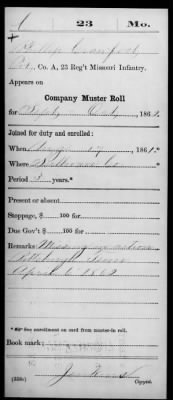 C 23 Mo.
Crawford
Pvt., Co. A, 23 Reg't Missouri Infantry.
Appears on
Company Muster Roll
for Sept & Oct, 1862.
Joined for duty and enrolled:
When Aug 17, 1861.*
Where
Period 3 years.*
Present or absent
Stoppage, $ 100 for
Due Gov't $ 100 for
Remarks: Missing in action
Pittsburgh Tenn
April 6 1862
*See enrollment on card from muster-in roll.
Book mark:
(358c) Copyist.